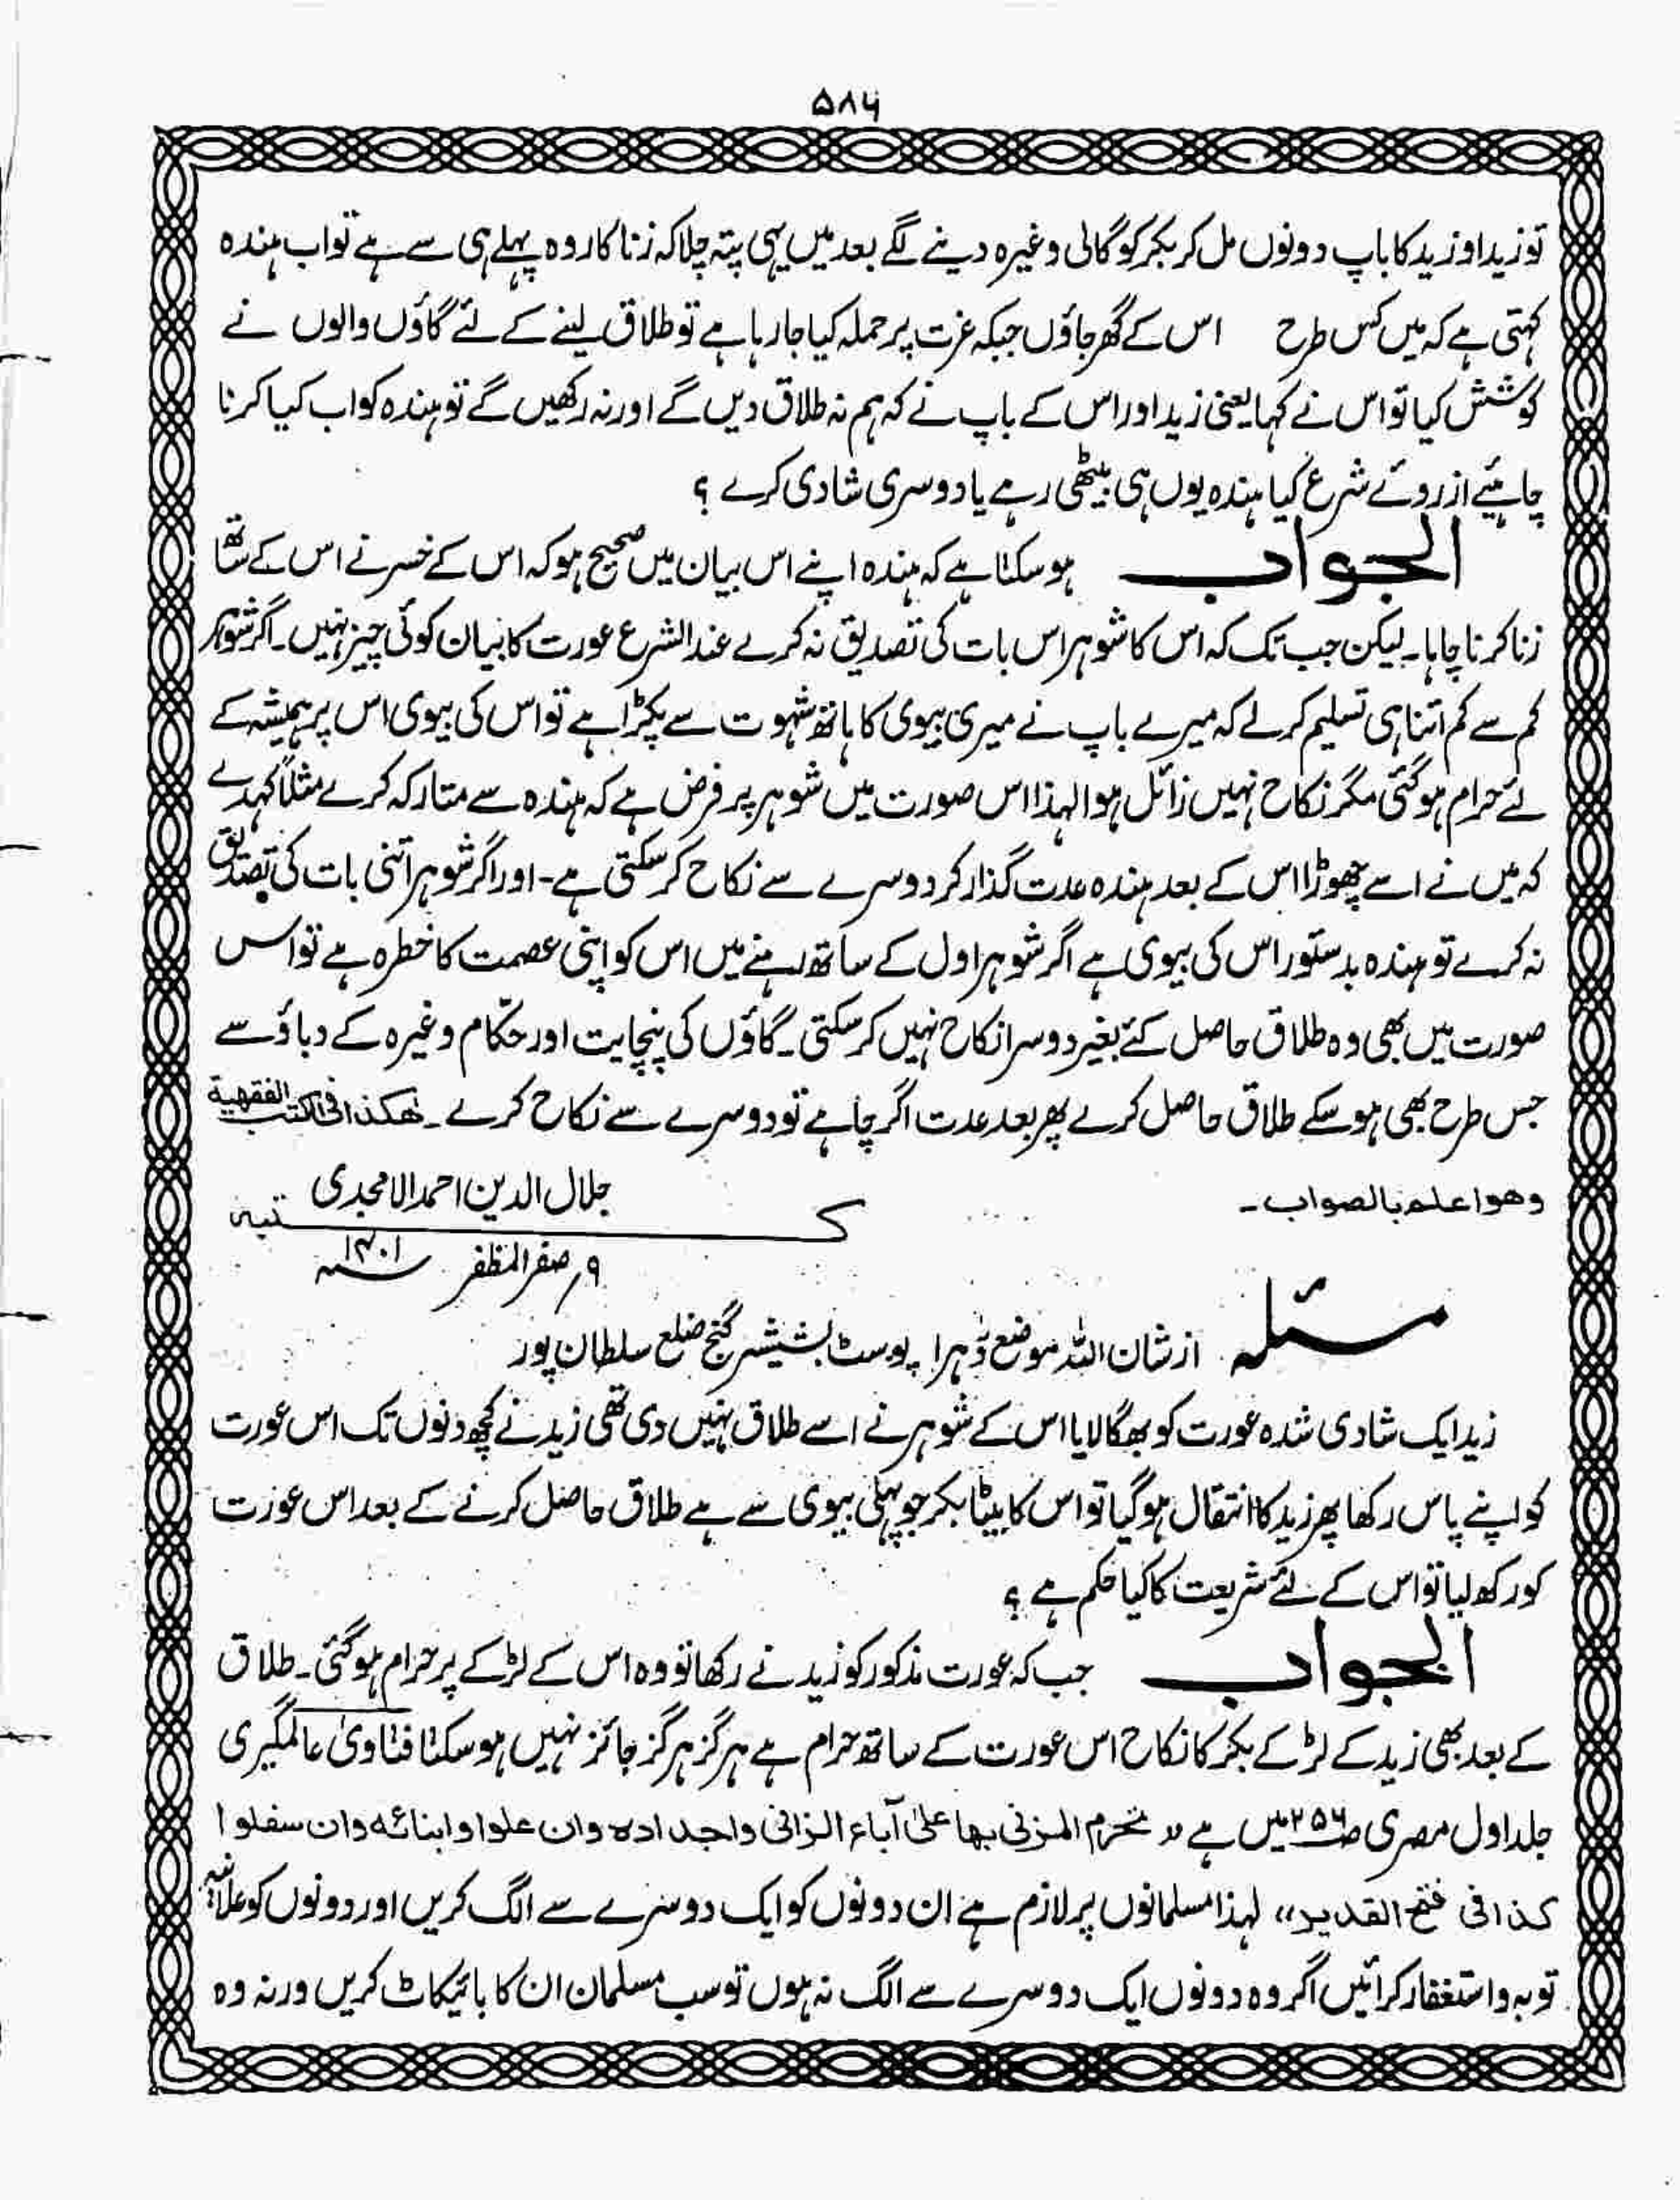 ۵۸۶
تو زید اور زید کا باپ دونوں مل کر بکر کو گالی وغیرہ دینے لگے بعد میں یہی پتہ چلا کہ زنا کار وہ پہلے ہی سے ہے تو اب ہندہ
کہتی ہے کہ میں کس طرح اس کے گھر جاؤں جبکہ عزت پر حملہ کیا جا رہا ہے تو طلاق لینے کے لئے گاؤں والوں نے
کوشش کیا تو اس نے کہا یعنی زید اور اس کے باپ نے کہ ہم نہ طلاق دیں گے اور نہ رکھیں گے تو ہندہ کو اب کیا کرنا
چاہئیے از روئے شرع کیا ہندہ یوں ہی بیٹھی رہے یا دوسری شادی کرے ؟
الجواب ہو سکتا ہے کہ ہندہ اپنے اس بیان میں صحیح ہو کہ اس کے خسر نے اس کے ساتھ
زنا کرنا چاہا۔ لیکن جب تک کہ اس کا شوہر اس بات کی تصدیق نہ کرے عند الشرع عورت کا بیان کوئی چیز نہیں۔ اگر شوہر
کم سے کم اتنا ہی تسلیم کر لے کہ میرے باپ نے میری بیوی کا ہاتھ شہوت سے پکڑا ہے تو اس کی بیوی اس پر ہمیشہ کے
لئے حرام ہو گئی مگر نکاح نہیں زائل ہوا لہذا اس صورت میں شوہر پر فرض ہے کہ ہندہ سے متارکہ کرے مثلاً کہدے
کہ میں نے اسے چھوڑا اس کے بعد ہندہ عدت گذار کر دوسرے سے نکاح کر سکتی ہے۔ اور اگر شوہر اتنی بات کی تصدیق
نہ کرے تو ہندہ بدستور اس کی بیوی ہے اگر شوہر اول کے ساتھ رہنے میں اس کو اپنی عصمت کا خطرہ ہے تو اس
صورت میں بھی وہ طلاق حاصل کئے بغیر دوسرا نکاح نہیں کر سکتی۔ گاؤں کی پنچایت اور حکّام وغیرہ کے دباؤ سے
جس طرح بھی ہو سکے طلاق حاصل کرے پھر بعد عدت اگر چاہے تو دوسرے سے نکاح کرے۔ ھکذا فی الکتب الفقھیة
وھو اعلم بالصواب۔
جلال الدین احمد الامجدی
کتبہ
۹؍ صفر المظفر ۱۴۰۱
مسئلہ از شان اللہ موضع ڈہرا پوسٹ بشیشر گنج ضلع سلطان پور
زید ایک شادی شدہ عورت کو بھگا لایا اس کے شوہر نے اسے طلاق نہیں دی تھی زید نے کچھ دنوں تک اس عورت
کو اپنے پاس رکھا پھر زید کا انتقال ہو گیا تو اس کا بیٹا بکر جو پہلی بیوی سے ہے طلاق حاصل کرنے کے بعد اس عورت
کو رکھ لیا تو اس کے لئے شریعت کا کیا حکم ہے ؟
الجواب جب کہ عورت مذکور کو زید نے رکھا تو وہ اس کے لڑکے پر حرام ہو گئی۔ طلاق
کے بعد بھی زید کے لڑکے بکر کا نکاح اس عورت کے ساتھ حرام ہے ہرگز ہرگز جائز نہیں ہو سکتا فتاویٰ عالمگیری
جلد اول مصری ص ۲۵۶ میں ہے " تحرم المزنی بھا علیٰ آباء الزانی واجدادہ وان علوا وابنائہ وان سفلوا
کذا فی فتح القدیر" لہذا مسلمانوں پر لازم ہے ان دونوں کو ایک دوسرے سے الگ کریں اور دونوں کو علانیہ
توبہ و استغفار کرائیں اگر وہ دونوں ایک دوسرے سے الگ نہ ہوں تو سب مسلمان ان کا بائیکاٹ کریں ورنہ وہ